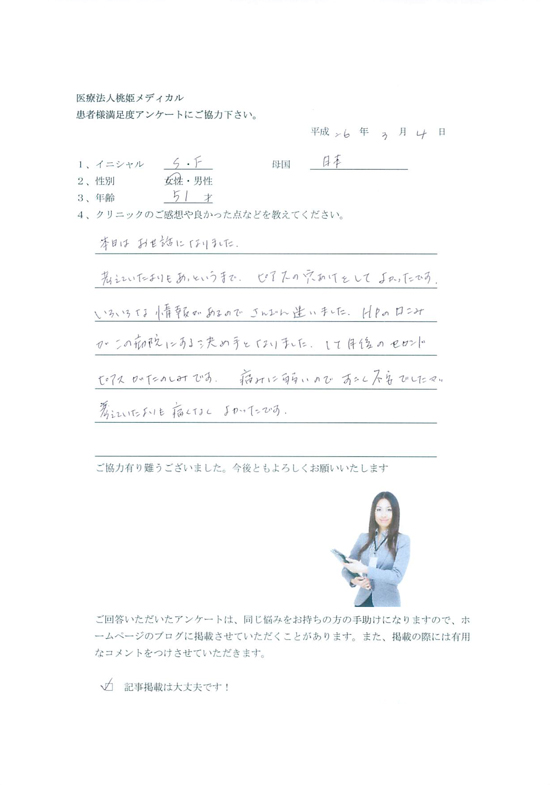 医療法人桃姫メディカル
患者様満足度アンケートにご協力下さい。
平成 26 年 3 月 4 日
1、イニシャル S・F 母国 日本
2、性別 女性・男性
3、年齢 51 才
4、クリニックのご感想や良かった点などを教えてください。
本日は お世話になりました。
考えていたよりもあっというまで、ピアスの穴あけをして よかったです。
いろいろな 情報があるので さんざん 迷いました。HPの口コミ
が この病院にする決め手となりました。1ヶ月後の セカンド
ピアスが たのしみです。 痛みに弱いので すこし 不安でしたが
考えていたよりも 痛くなく よかったです。
ご協力有り難うございました。今後ともよろしくお願いいたします
ご回答いただいたアンケートは、同じ悩みをお持ちの方の手助けになりますので、ホ
ームページのブログに掲載させていただくことがあります。また、掲載の際には有用
なコメントをつけさせていただきます。
記事掲載は大丈夫です！